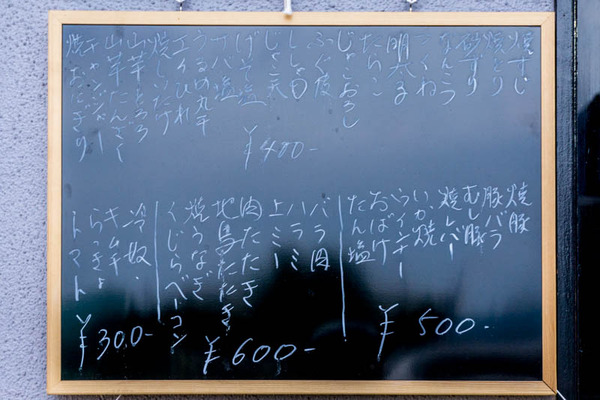 焼すじ
焼とり
砂ずり
なんこつ
つくね
明太子
たらこ
じゃこおろし
ふぐ皮
ししゃも
じゃこ天
げそ塩
うるめ丸干
エイひれ
焼しいたけ
山芋とろろ
山芋たんざく
チャンジャ
焼おにぎり
¥400-
焼豚
豚バラ
むし豚
焼レバー
ウインナー
いか焼
おばけ
たん塩
¥500-
バラ肉
ハラミ
上ミノ
肉たたき
地鳥たたき
焼うなぎ
くじらベーコン
¥600-
冷奴
キムチ
らっきょ
トマト
¥300-